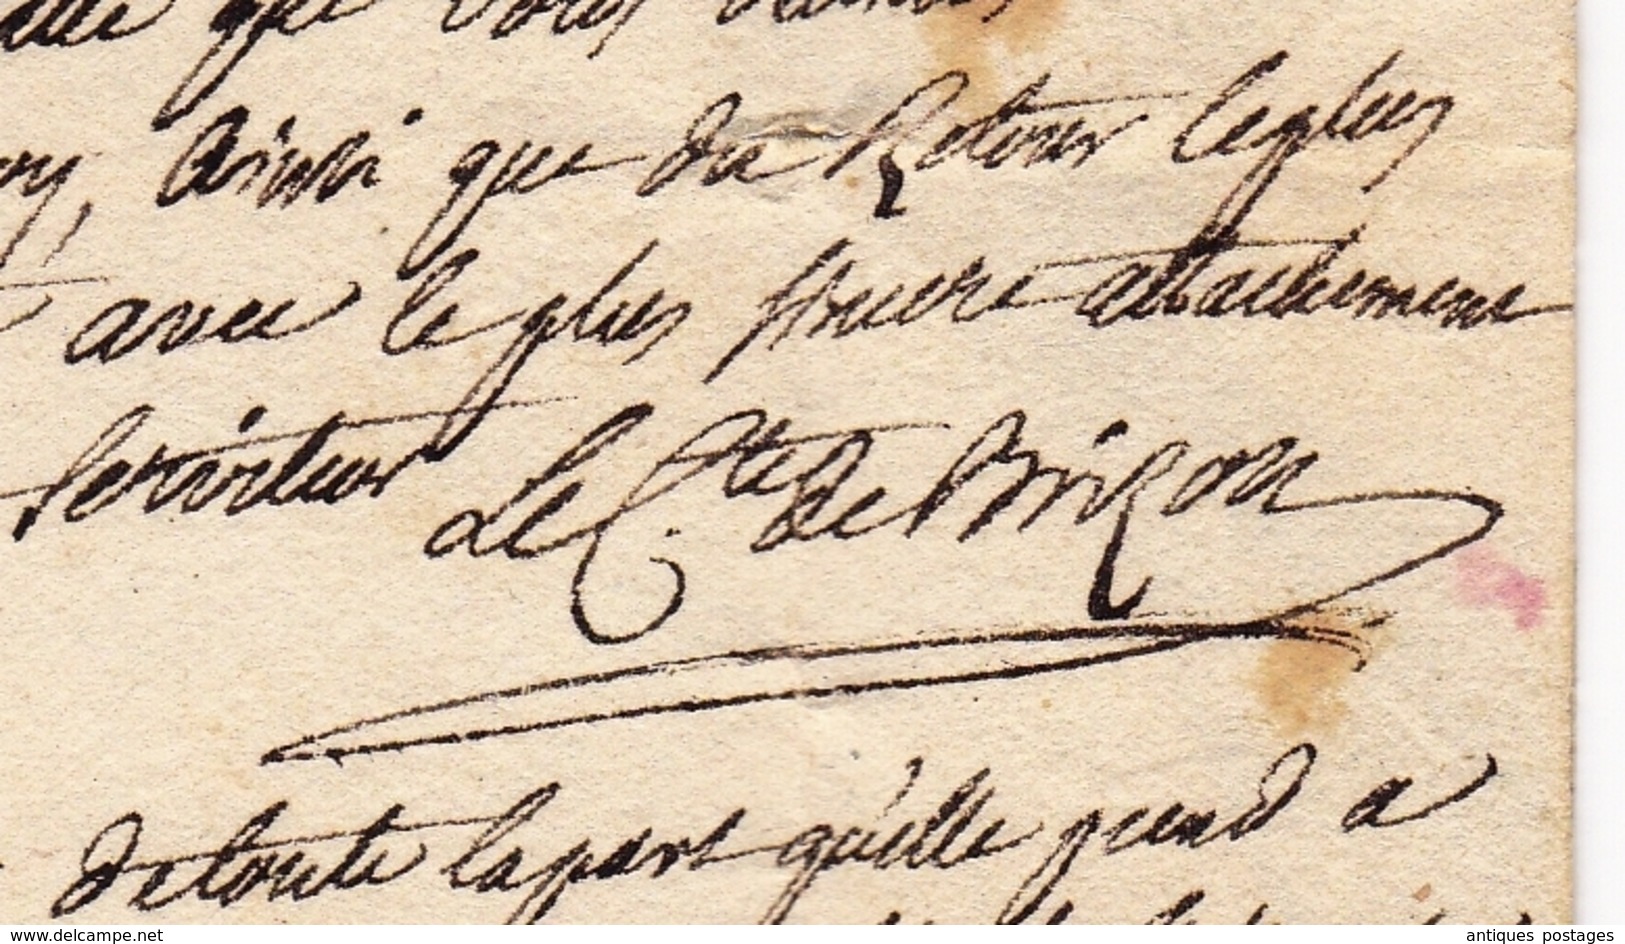 que vous
, ainsi que du Retour le plus
avec le plus sincere attachement
serviteur Le C.te de Brizon
de toute la part qu'elle prend a
www.delcampe.net
antiques postages